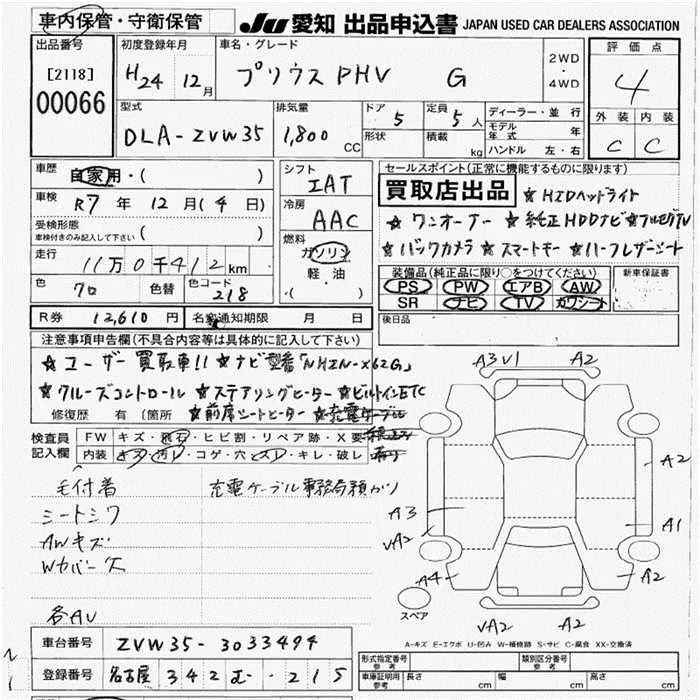 車内保管・守衛保管 JU 愛知 出品申込書 JAPAN USED CAR DEALERS ASSOCIATION
出品番号 初度登録年月 車名・グレード 2WD・4WD 評価点
[2118] H24 12月 プリウス PHV G 4
00066
型式 排気量 ドア 5 定員 5人 ディーラー・並行 外装 内装
DLA-ZVW35 1,800 CC 形状 積載 kg モデル年式 年 C C
ハンドル 左・右
車歴 自家用・( ) シフト IAT セールスポイント(正常に機能するものに限ります)
車検 R7年 12月(4日) 冷房 AAC 買取店出品 ☆HIDヘッドライト
受検形態 車検付きのみ記入して下さい ( ) ☆ワンオーナー ☆純正HDDナビ☆フルセグTV
走行 11万0千412km 燃料 ガソリン 軽油 ・( ) ☆バックカメラ ☆スマートキー ☆ハーフレザーシート
色 クロ 色替 色コード 218 装備品(純正品に限り○をつけてください) 新車保証書
PS PW エアB AW
SR ナビ TV カワシート
R券 12,610円 名変通知期限 月 日 後日品
注意事項申告欄(不具合内容等は具体的に記入して下さい)
☆ユーザー買取車!! ☆ナビ型番「NHZN-X62G」
☆クルーズコントロール ☆ステアリングヒーター ☆ビルトインETC
修復歴 有(箇所 ☆前席シートヒーター ☆充電ケーブル
検査員記入欄 FW キズ・飛石・ヒビ割・リペア跡・X要
内装 キズ・汚レ・コゲ・穴・スレ・キレ・破レ
毛付着 充電ケーブル事務局預かり
シートシワ
AWキズ
Wカバー欠
各AU
A3 V1 A2
A2
A3 A1
VA2
A4 A2
スペア
VA2 A2
A-キズ E-エクボ U-凹み W-補修跡 S-サビ C-腐食 XX-交換済
車台番号 ZVW35-3033494
登録番号 名古屋 342 む ・215
形式指定番号 参考 類別区分番号 参考
車庫証明用 参考 長さ cm 幅 cm 高さ cm